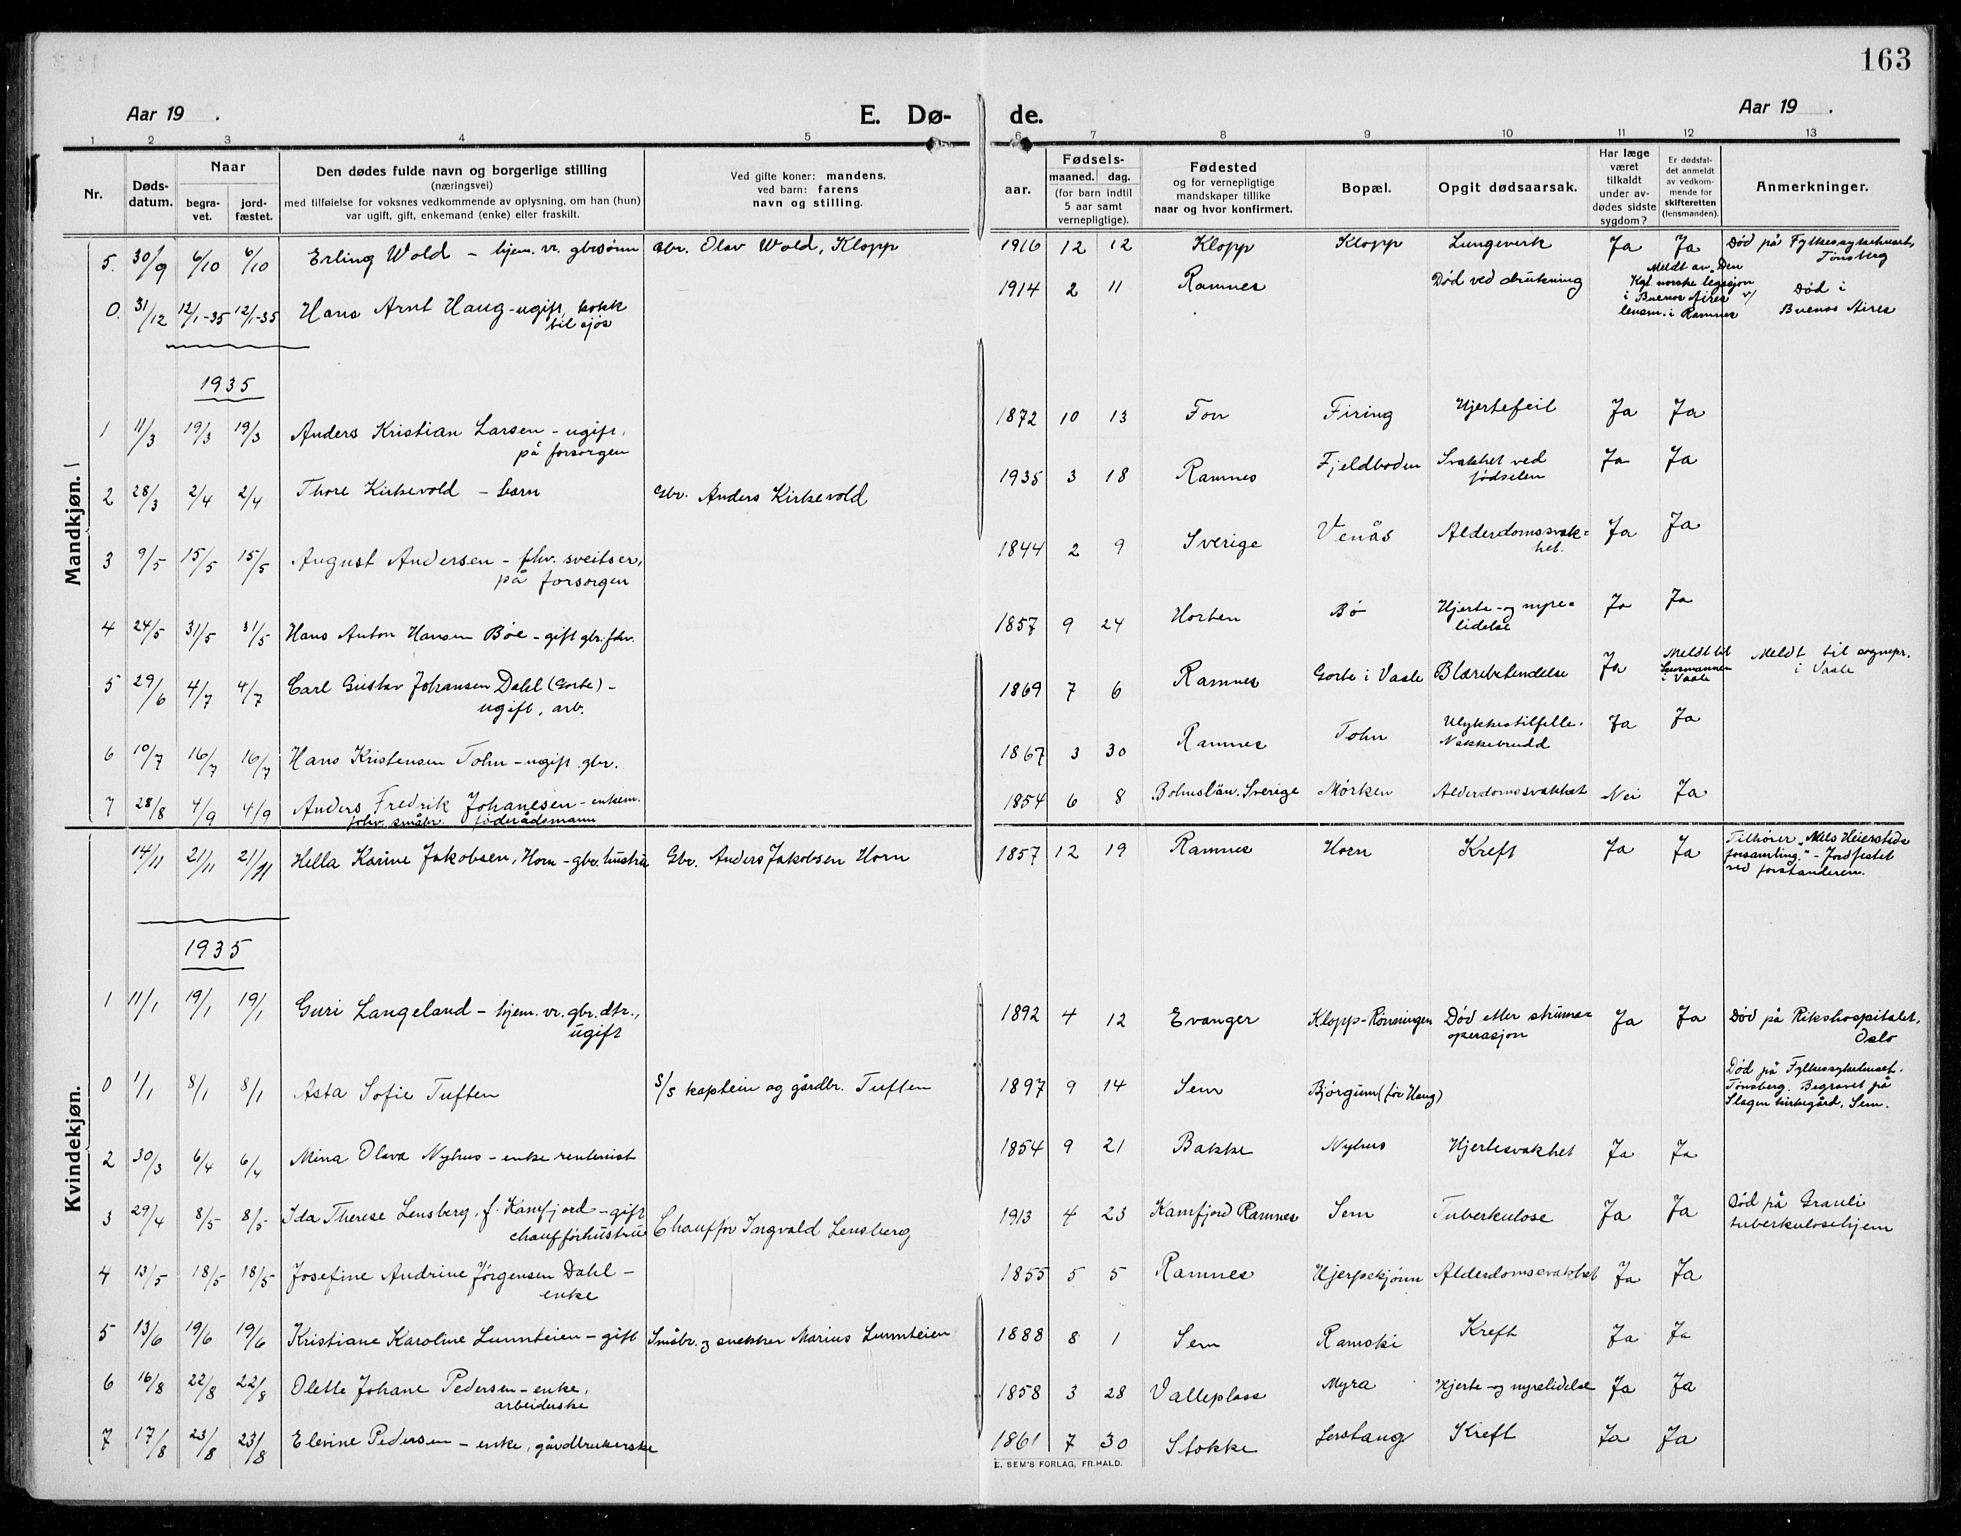 163
Aar 19 . E. Dø- de. Aar 19 .
1 2 3 4 5 6 7 8 9 10 11 12 13
Nr.
Døds-
datum.
Naar
begra-
vet.
jord-
fæstet.
Den dødes fulde navn og borgerlige stilling
(næringsvei)
med tilføielse for voksnes vedkommende av oplysning, om han (hun)
var ugift, gift, enkemand (enke) eller fraskilt.
Ved gifte koner: mandens,
ved barn: farens
navn og stilling.
aar.
Fødsels-
maaned. dag.
(for barn indtil
5 aar samt
vernepligtige).
Fødested
og for vernepligtige
mandskaper tillike
naar og hvor konfirmert.
Bopæl.
Opgit dødsaarsak.
Har læge
været
tilkaldt
under av-
dødes sidste
sygdom?
Er dødsfal-
det anmeldt
av vedkom-
mende for
skifteretten
(lensmanden).
Anmerkninger.
Mandkjøn.
5. 30/9 6/10 6/10 Erling Wold – hjem. vr. gbrsønn Gbr. Olav Wold, Klopp 1916 12 12 Klopp Klopp Lungeverk Ja Ja Død på Fylkessykehuset,
Tønsberg
0. 31/12 12/1-35 12/1-35 Hans Arnt Haug – ugift, kokk
til sjøs 1914 2 11 Ramnes Død ved drukning Meldt av „Den
Kgl. norske legasjon
i Buenos Aires v/
lensm. i Ramnes Død i
Buenos Aires
1935
1 11/3 19/3 19/3 Anders Kristian Larsen – ugift,
på forsorgen 1872 10 13 Fon Firing Hjertefeil Ja Ja
2 28/3 2/4 2/4 Thore Kirkevold – barn Gbr. Anders Kirkevold 1935 3 18 Ramnes Fjeldboden Svakhet ved
fødselen Ja Ja
3 9/5 15/5 15/5 August Andersen – fhv. sveitser,
på forsorgen 1844 2 9 Sverige Venås Alderdomssvak=
het. Ja Ja
4 24/5 31/5 31/5 Hans Anton Hansen Bøe – gift gbr. fhv. 1857 9 24 Horten Bø Hjerte- og nyre=
lidelse Ja Ja
5 29/6 4/7 4/7 Carl Gustav Johansen Dahl (Gorte) –
ugift, arb. 1869 7 6 Ramnes Gorte i Vaale Blærebetendelse Ja Meldt til
Lensmannen
i Vaale Meldt til sognepr.
i Vaale
6 10/7 16/7 16/7 Hans Kristensen Tohn – ugift gbr. 1867 3 30 Ramnes Tohn Ulykkestilfelle.
Nakkebrudd Ja Ja
7 28/8 4/9 4/9 Anders Fredrik Johanesen – enkem.
fohv. småbr. føderådsmann 1854 6 8 Bohuslän. Sverige Mørken Alderdomssvakhet Nei Ja
Kvindekjøn.
14/11 21/11 21/11 Hella Karine Jakobsen, Horn – gbr. hustru Gbr. Anders Jakobsen Horn 1857 12 19 Ramnes Horn Kreft Ja Ja Tilhører „Nils Heiersteds
forsamling.“ – Jordfestet
ved forstanderen.
1935
1 11/1 19/1 19/1 Guri Langeland – hjem. vr. gbr. dtr.,
ugift 1892 4 12 Evanger Klopp-Rønningen Død etter struma=
operasjon Ja Ja Død på Rikshospitalet,
Oslo
0 1/1 8/1 8/1 Asta Sofie Tuften S/S kaptein og gårdbr. Tuften 1897 9 14 Sem Bjørgum (før Haug) Død på Fylkessykehuset.
Tønsberg. Begravet på
Slagen kirkegård, Sem.
2 30/3 6/4 6/4 Mina Olava Nyhus – enke rentenist 1854 9 21 Bakke Nyhus Hjertesvakhet Ja Ja
3 29/4 8/5 8/5 Ida Therese Lensberg, f. Kamfjord – gift
chaufførhustru Chauffør Ingvald Lensberg 1913 4 23 Kamfjord Ramnes Sem Tuberkulose Ja Ja Død på Grauli
tuberkulosehjem
4 13/5 18/5 18/5 Josefine Andrine Jørgensen Dahl –
enke 1855 5 5 Ramnes Hjerpekjønn Alderdomssvakhet Ja Ja
5 13/6 19/6 19/6 Kristiane Karoline Lunnteien – gift Småbr. og snekker Marius Lunnteien 1888 8 1 Sem Ramski Kreft Ja Ja
6 16/8 22/8 22/8 Olette Johane Pedersen – enke,
arbeiderske 1858 3 28 Valleplass Myra Hjerte- og nyrelidelse Ja Ja
7 17/8 23/8 23/8 Elevine Pedersen – enke, gårdbrukerske 1861 7 30 Stokke Lerstang Kreft Ja Ja
E. SEM'S FORLAG, FR.HALD.